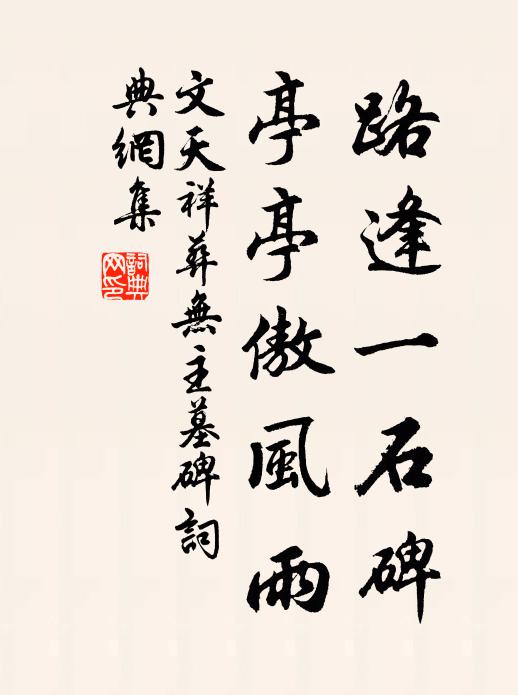 路逢一石碑
亭亭傲風雨
文天祥葬無主墓碑詞
典網集
詞典
网印